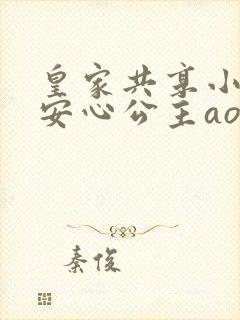 皇家共享小
安心公主ao
秦俊